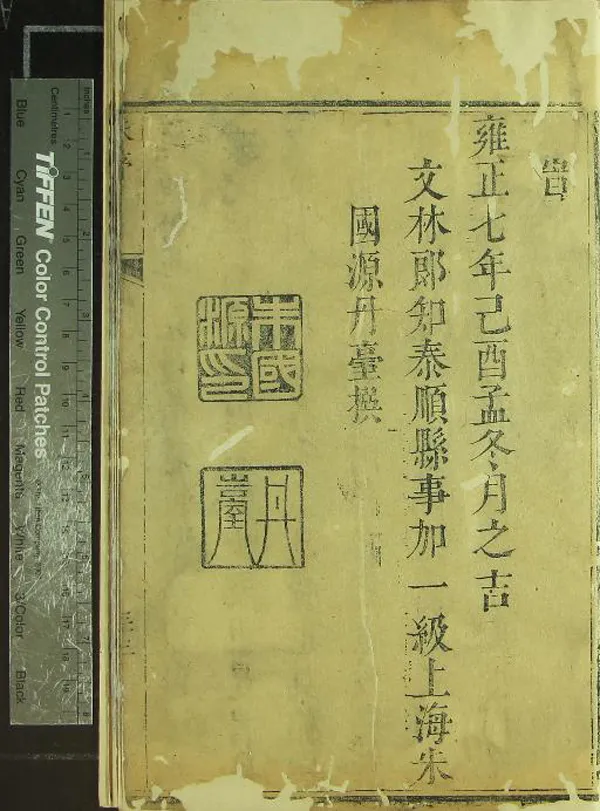 旹
雍正七年己酉孟冬月之吉
文林郎知泰順縣事加一級上海朱
國源丹臺撰
朱國
源印
丹
臺
Inches
Centimetres
TIFFEN Color Control Patches
Blue
Cyan
Green
Yellow
Red
Magenta
White
3/Color
Black